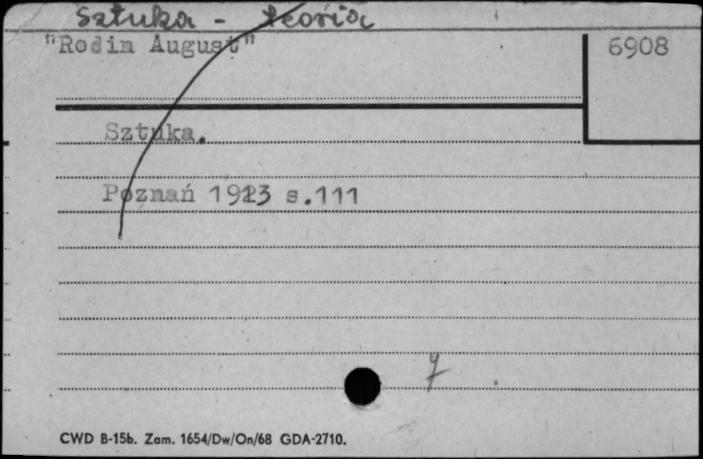 Sztuka - teoria
"Rodin August"
6908
Sztuka.
Poznań 1923 s.111
7
CWD B-15b. Zam. 1654/Dw/On/68 GDA-2710.